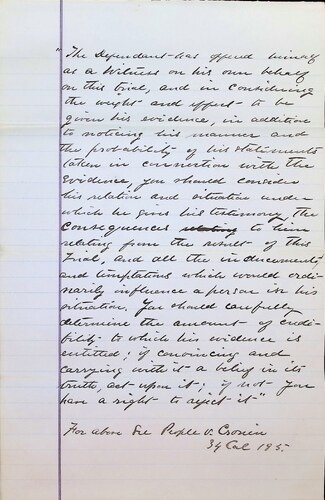 "The Defendant has offered himself
as a Witness on his own behalf
on this trial, and in considering
the weight and effect to be
given his evidence, in addition
to noticing his manner and
the probability of his statements
taken in connection with the
Evidence, you should consider
his relation and situation under
which he gives his testimony, The
Consequences relating to him
relating from the result of this
Trial, and all the inducements
and temptations which would ordi-
narily influence a person in his
situation. You should carefully
determine the amount of credi-
bility to which his evidence is
entitled; if convincing and
carrying with it a belief in its
truth, act upon it; if not You
have a right to reject it"
For above See People v. Cronin
34 Cal 195.